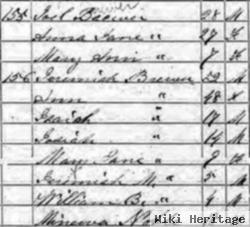 155 Joel Brewer 28 M
Anna Jane " 27 F
Mary Ann " 7 F
156 Jeremiah Brewer 52 M
Ann " 48 F
Isaiah " 17 M
Josiah " 14 M
Mary Jane " 9 F
Jeremiah W. " 5 M
William B. " 4 M
Minerva
Wiki Heritage